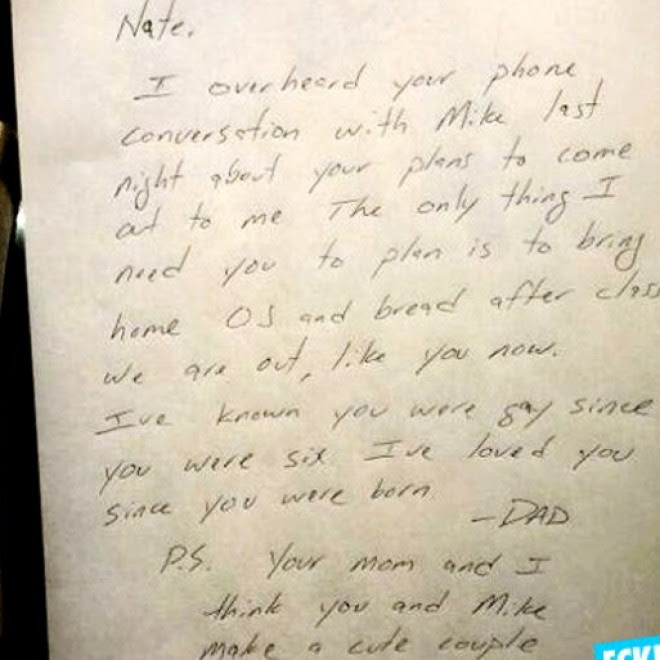 Nate,
I overheard your phone
conversation with Mike last
night about your plans to come
out to me The only thing I
need you to plan is to bring
home OJ and bread after class
we are out, like you now.
I've known you were gay since
you were six I've loved you
since you were born
-DAD
P.S. Your mom and I
think you and Mike
make a cute couple